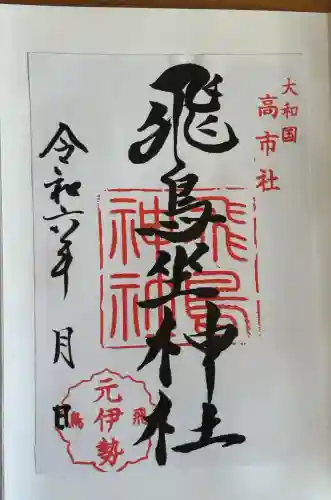 大和国
高市社
飛鳥坐神社
飛鳥
神社
令和六年 月 日
元伊勢
飛鳥